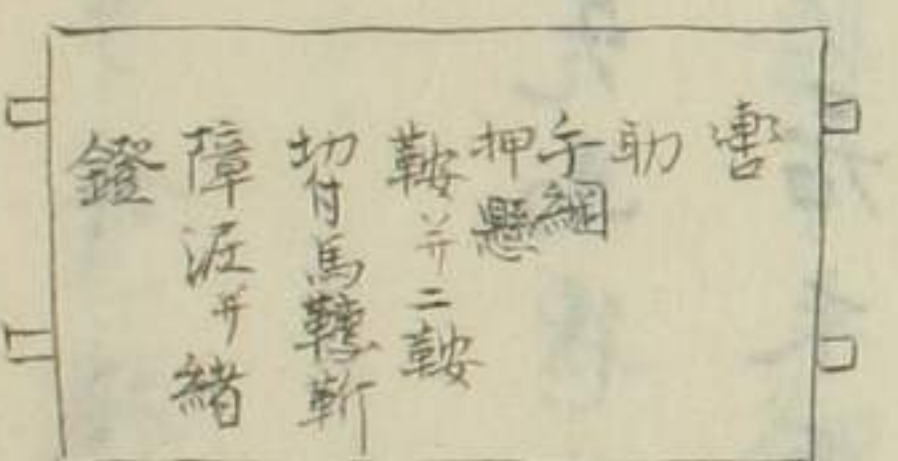 轡
助
手綱
押懸
鞍并二鞍
切付馬韉靳
障泥并緒
鐙